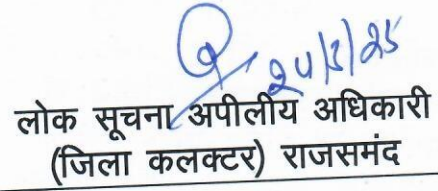 24/3/25
लोक सूचना अपीलीय अधिकारी
(जिला कलक्टर) राजसमंद